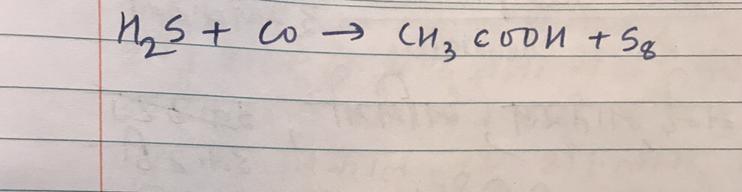 H₂S + CO → CH₃COOH + S₈